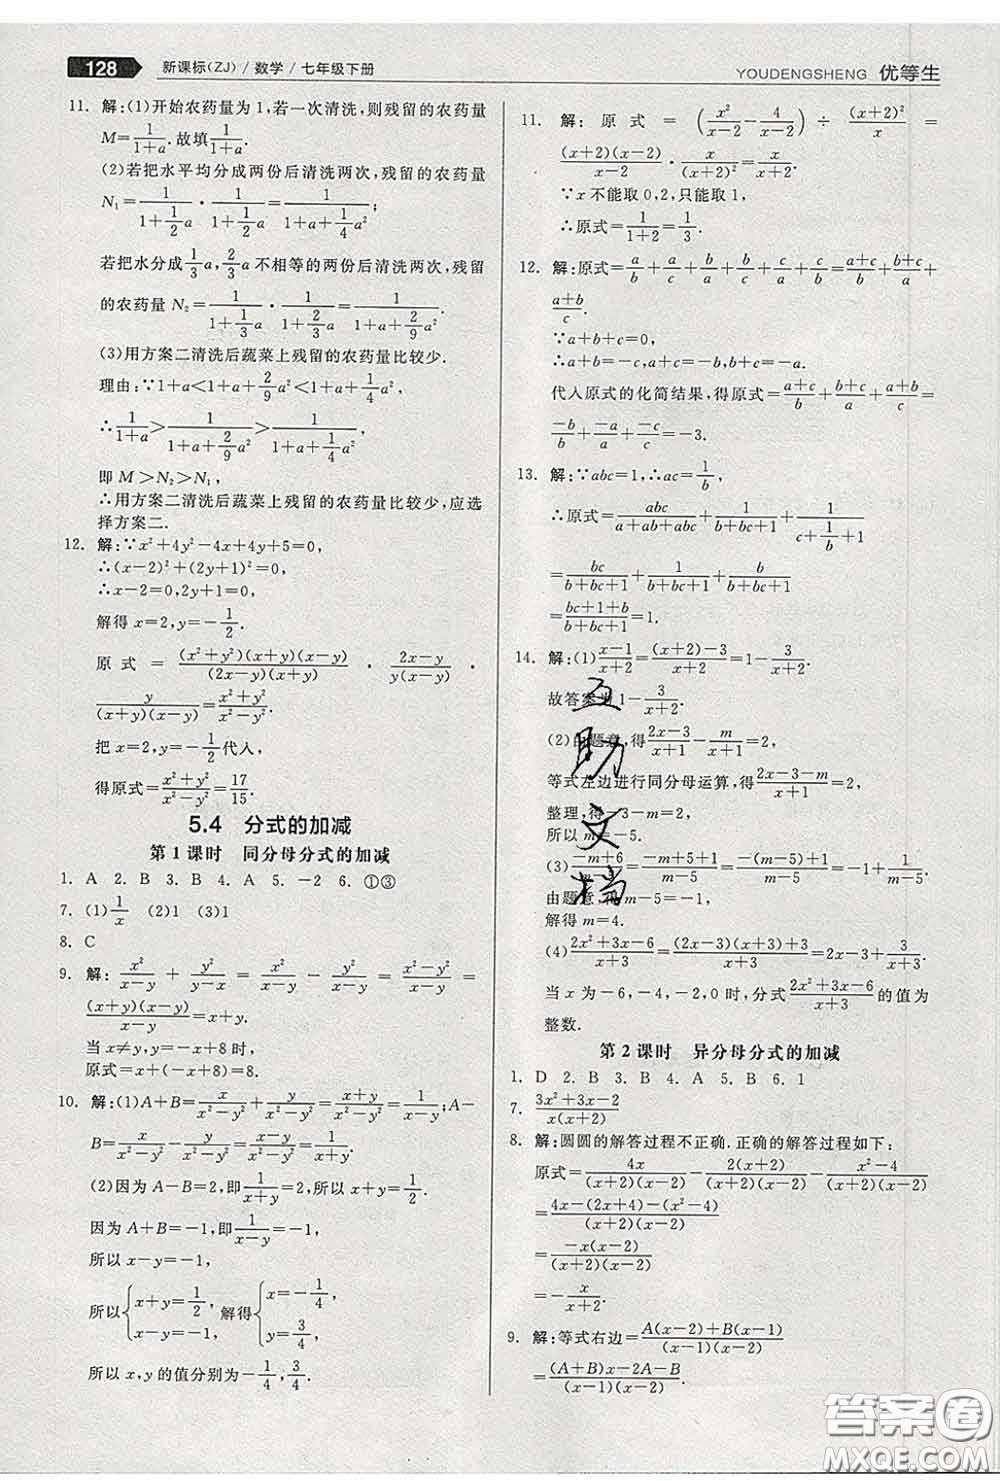 128 新课标(ZJ)/数学/七年级下册
YOUDENGSHENG 优等生
11. 解:(1)开始农药量为1,若一次清洗,则残留的农药量
M=1/(1+a).故填1/(1+a).
(2)若把水平均分成两份后清洗两次,残留的农药量
N₁=1/(1+1/2 a)·1/(1+1/2 a)=1/(1+a+1/4 a²);
若把水分成1/3 a,2/3 a不相等的两份后清洗两次,残留
的农药量N₂=1/(1+1/3 a)·1/(1+2/3 a)=1/(1+a+2/9 a²).
(3)用方案二清洗后蔬菜上残留的农药量比较少.
理由:∵1+a<1+a+2/9 a²<1+a+1/4 a²,
∴1/(1+a)>1/(1+a+2/9 a²)>1/(1+a+1/4 a²),
即M>N₂>N₁,
∴用方案二清洗后蔬菜上残留的农药量比较少,应选
择方案二.
12. 解:∵x²+4y²-4x+4y+5=0,
∴(x-2)²+(2y+1)²=0,
∴x-2=0,2y+1=0,
解得x=2,y=-1/2.
原式=(x²+y²)(x+y)(x-y)/((2x-y)(x-y))·(2x-y)/(y(x-y))·
y/((x+y)(x-y))=(x²+y²)/(x²-y²).
把x=2,y=-1/2代入,
得原式=(x²+y²)/(x²-y²)=17/15.
5.4 分式的加减
第1课时 同分母分式的加减
1. A 2. B 3. B 4. A 5. -2 6. ①③
7. (1)1/x (2)1 (3)1
8. C
9. 解:x²/(x-y)+y²/(y-x)=x²/(x-y)-y²/(x-y)=(x²-y²)/(x-y)=
(x+y)(x-y)/(x-y)=x+y.
当x≠y,y=-x+8时,
原式=x+(-x+8)=8.
10. 解:(1)A+B=x/(x²-y²)+y/(x²-y²)=(x+y)/(x²-y²)=1/(x-y);A-
B=x/(x²-y²)-y/(x²-y²)=(x-y)/(x²-y²)=1/(x+y).
(2)因为A-B=2,即1/(x+y)=2,所以x+y=1/2.
因为A+B=-1,即1/(x-y)=-1,
所以x-y=-1,
所以{x+y=1/2, x-y=-1, 解得{x=-1/4, y=3/4.
所以x,y的值分别为-1/4,3/4.
11. 解:原式=(x²/(x-2)-4/(x-2))÷(x+2)²/x=
(x+2)(x-2)/(x-2)·x/(x+2)²=x/(x+2).
∵x不能取0,2,只能取1.
∴原式=1/(1+2)=1/3.
12. 解:原式=a/b+a/c+b/c+b/a+c/a+c/b=(a+c)/b+(b+c)/a+
(a+b)/c.
∵a+b+c=0,
∴a+b=-c,a+c=-b,b+c=-a.
代入原式的化简结果,得原式=(a+c)/b+(b+c)/a+(a+b)/c=
-b/b+-a/a+-c/c=-3.
13. 解:∵abc=1,∴ac=1/b,
∴原式=abc/(a+ab+abc)+1/(b+bc+1)+1/(c+1/b+1)
=bc/(b+bc+1)+1/(b+bc+1)+b/(b+bc+1)
=(bc+1+b)/(b+bc+1)=1.
14. 解:(1)(x-1)/(x+2)=((x+2)-3)/(x+2)=1-3/(x+2).
故答案为1-3/(x+2).
(2)由题意,得(2x-3)/(x+1)-m/(x+1)=2,
等式左边进行同分母运算,得(2x-3-m)/(x+1)=2,
整理,得-3-m=2,
所以m=-5.
(3)(-m+6)/(m-5)=(-m+5+1)/(m-5)=(-(m-5)+1)/(m-5)=-1+1/(m-5).
由题意,得m-5=-1,
解得m=4.
(4)(2x²+3x-6)/(x+3)=((2x-3)(x+3)+3)/(x+3)=2x-3+3/(x+3).
当x为-6,-4,-2,0时,分式(2x²+3x-6)/(x+3)的值为
整数.
第2课时 异分母分式的加减
1. D 2. B 3. B 4. A 5. B 6. 1
7. (3x²+3x-2)/(x(x+2))
8. 解:圆圆的解答过程不正确.正确的解答过程如下:
原式=4x/((x+2)(x-2))-2(x+2)/((x-2)(x+2))-(x+2)(x-2)/((x+2)(x-2))
=(4x-(2x+4)-(x²-4))/((x+2)(x-2))
=-x(x-2)/((x+2)(x-2))
=-x/(x+2).
9. 解:等式右边=(A(x-2)+B(x-1))/((x-1)(x-2))
=((A+B)x-2A-B)/((x-1)(x-2)).
互助文档
答案圈
MXQE.COM